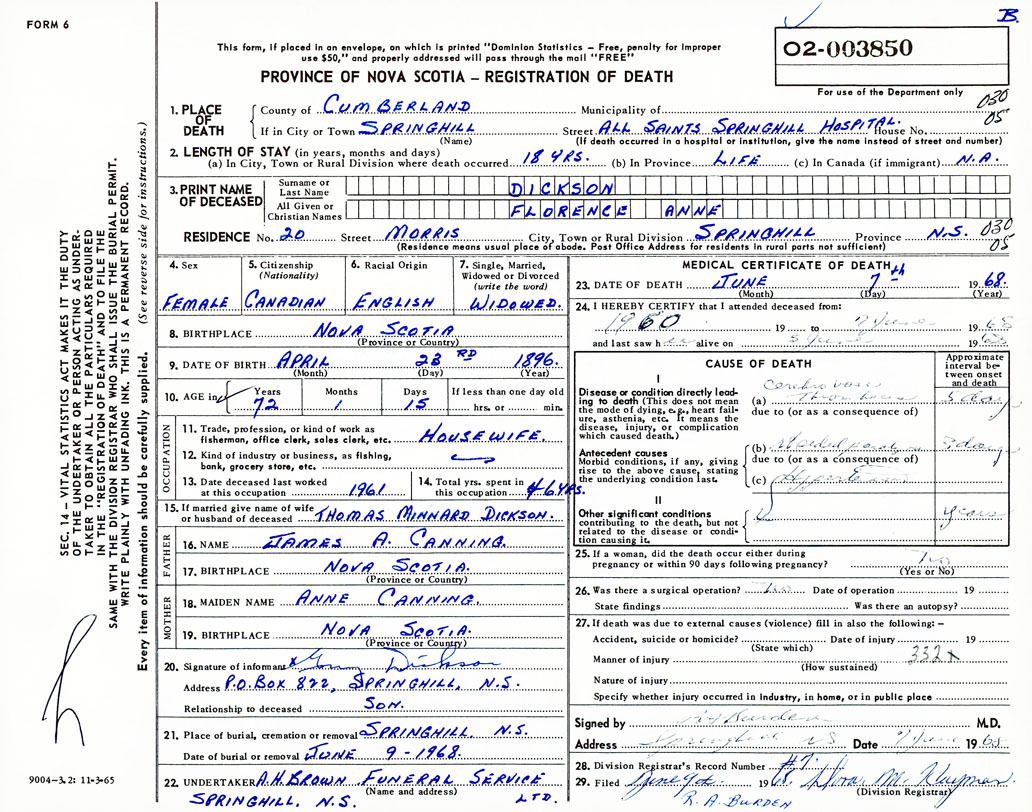 FORM 6
B.
This form, if placed in an envelope, on which is printed "Dominion Statistics – Free, penalty for improper
use $50," and properly addressed will pass through the mail "FREE"
02-003850
PROVINCE OF NOVA SCOTIA – REGISTRATION OF DEATH
For use of the Department only
030
05
1. PLACE OF DEATH
County of CUMBERLAND Municipality of
If in City or Town SPRINGHILL Street ALL SAINTS SPRINGHILL HOSPITAL. House No.
(Name) (If death occurred in a hospital or institution, give the name instead of street and number)
2. LENGTH OF STAY (in years, months and days)
(a) In City, Town or Rural Division where death occurred 18 YRS. (b) In Province LIFE (c) In Canada (if immigrant) N.A.
3. PRINT NAME OF DECEASED
Surname or Last Name DICKSON
All Given or Christian Names FLORENCE ANNE
RESIDENCE No. 20 Street MORRIS City, Town or Rural Division SPRINGHILL Province N.S. 030
05
(Residence means usual place of abode. Post Office Address for residents in rural parts not sufficient)
4. Sex
FEMALE
5. Citizenship
(Nationality)
CANADIAN
6. Racial Origin
ENGLISH
7. Single, Married,
Widowed or Divorced
(write the word)
WIDOWED.
8. BIRTHPLACE NOVA SCOTIA
(Province or Country)
9. DATE OF BIRTH APRIL 23RD 1896.
(Month) (Day) (Year)
10. AGE in Years Months Days If less than one day old
72 1 15 hrs. or min.
OCCUPATION
11. Trade, profession, or kind of work as
fisherman, office clerk, sales clerk, etc. HOUSEWIFE.
12. Kind of industry or business, as fishing,
bank, grocery store, etc.
13. Date deceased last worked
at this occupation 1961
14. Total yrs. spent in
this occupation 46 YRS.
15. If married give name of wife
or husband of deceased THOMAS MINNARD DICKSON.
FATHER
16. NAME JAMES A. CANNING.
17. BIRTHPLACE NOVA SCOTIA.
(Province or Country)
MOTHER
18. MAIDEN NAME ANNE CANNING.
19. BIRTHPLACE NOVA SCOTIA.
(Province or Country)
20. Signature of informant x Dickson
Address P.O. BOX 822, SPRINGHILL, N.S.
Relationship to deceased SON.
21. Place of burial, cremation or removal SPRINGHILL N.S.
Date of burial or removal JUNE 9-1968.
22. UNDERTAKER A.H. BROWN FUNERAL SERVICE
(Name and address)
SPRINGHILL, N.S. LTD.
MEDICAL CERTIFICATE OF DEATH
23. DATE OF DEATH JUNE 7th 1968.
(Month) (Day) (Year)
24. I HEREBY CERTIFY that I attended deceased from:
1960 19 to 7 June 1968
and last saw her alive on 5 June 1968
CAUSE OF DEATH
Approximate
interval be-
tween onset
and death
I
Disease or condition directly lead-
ing to death (This does not mean
the mode of dying, e.g., heart fail-
ure, asthenia, etc. It means the
disease, injury, or complication
which caused death.)
(a) Thrombosis
due to (or as a consequence of)
Antecedent causes
Morbid conditions, if any, giving
rise to the above cause, stating
the underlying condition last.
(b) 3 days
due to (or as a consequence of)
(c) Hypertension
II
Other significant conditions
contributing to the death, but not
related to the disease or condi-
tion causing it.
years
25. If a woman, did the death occur either during
pregnancy or within 90 days following pregnancy? No
(Yes or No)
26. Was there a surgical operation? No Date of operation 19
State findings Was there an autopsy?
27. If death was due to external causes (violence) fill in also the following: –
Accident, suicide or homicide? Date of injury 19
(State which)
Manner of injury 332X
(How sustained)
Nature of injury
Specify whether injury occurred in industry, in home, or in public place
Signed by Burden M.D.
Address Springhill NS Date 7 June 1968
28. Division Registrar's Record Number #7.
29. Filed June 9th 1968.
(Division Registrar)
R. A. BURDEN
SEC. 14 – VITAL STATISTICS ACT MAKES IT THE DUTY
OF THE UNDERTAKER OR PERSON ACTING AS UNDER-
TAKER TO OBTAIN ALL THE PARTICULARS REQUIRED
IN THE "REGISTRATION OF DEATH" AND TO FILE THE
SAME WITH THE DIVISION REGISTRAR WHO SHALL ISSUE THE BURIAL PERMIT.
WRITE PLAINLY WITH UNFADING INK. THIS IS A PERMANENT RECORD.
Every item of information should be carefully supplied. (See reverse side for instructions.)
9004-3.2: 11-3-65